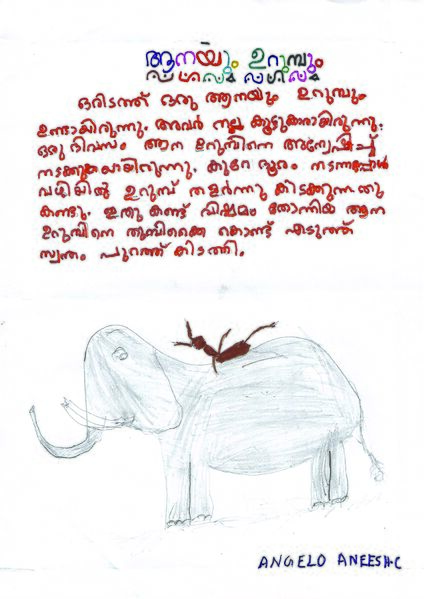 ആനയും ഉറുമ്പും
ഒരിടത്ത് ഒരു ആനയും ഉറുമ്പും
ഉണ്ടായിരുന്നു. അവർ നല്ല കൂട്ടുകാരായിരുന്നു.
ഒരു ദിവസം ആന ഉറുമ്പിനെ അന്വേഷിച്ച്
നടക്കുകയായിരുന്നു. കുറേ ദൂരം നടന്നപ്പോൾ
വഴിയിൽ ഉറുമ്പ് തളർന്നു കിടക്കുന്നതു
കണ്ടു. ഇതു കണ്ട് വിഷമം തോന്നിയ ആന
ഉറുമ്പിനെ തുമ്പിക്കൈ കൊണ്ട് എടുത്ത്
സ്വന്തം പുറത്ത് കിടത്തി.
ANGELO ANEESH.C